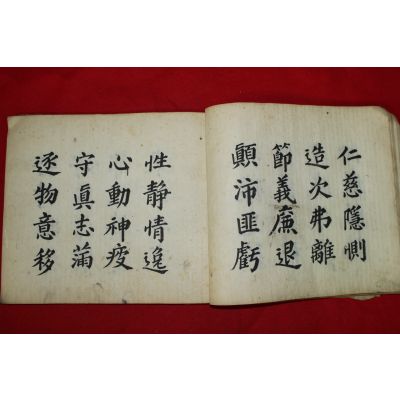 仁慈隱惻
造次弗離
節義廉退
顚沛匪虧
性静情逸
心動神疲
守眞志滿
逐物意移